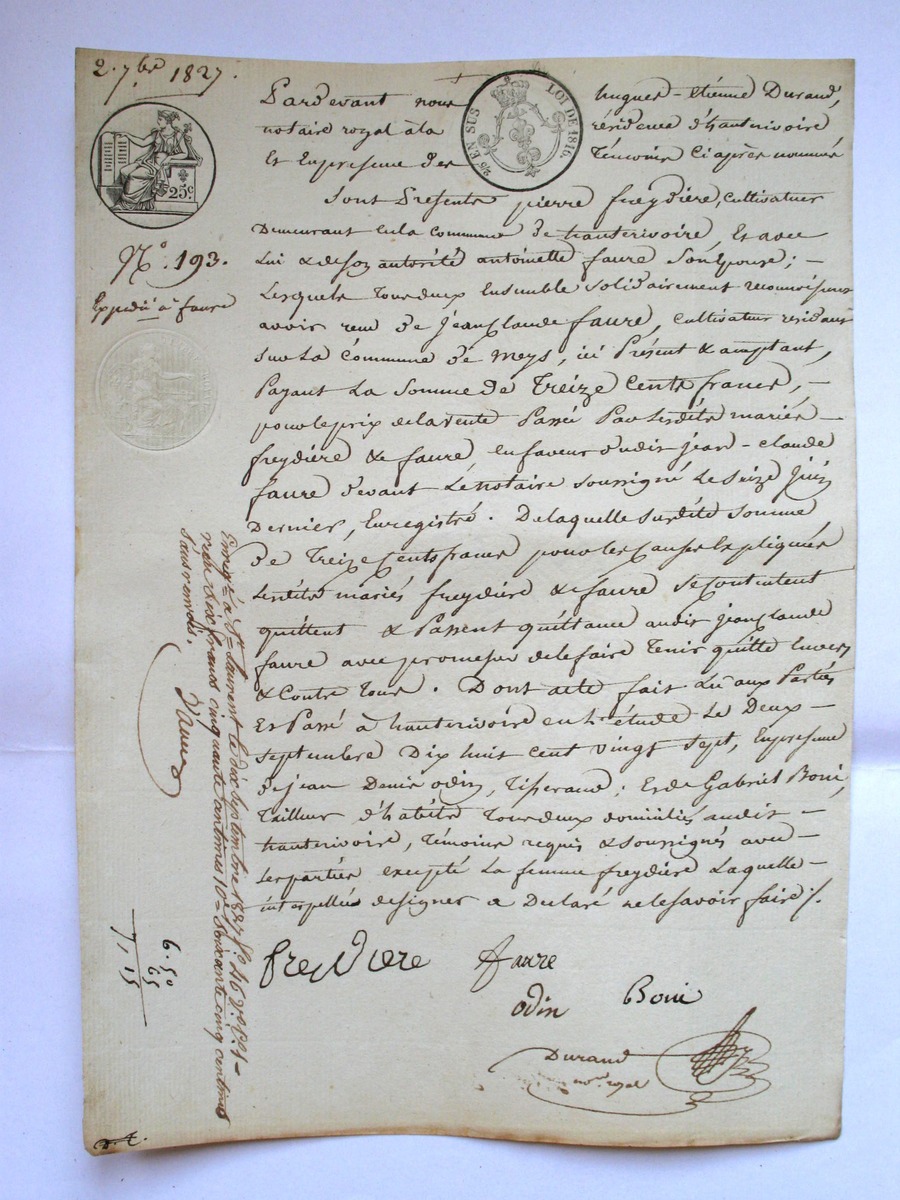 2. 7bre 1827.
25c.
25c EN SUS LOI DE 1816.
No. 193.
Expédié à faure
Pardevant nous hugues-etienne Durand,
notaire royal à la résidence d'hauterivoire
Et En presence des Témoins Ci après nommés
Sont Présents pierre freydiere, cultivateur
Demeurant En la commune de hauterivoire, Et avec
Lui & de son autorité antoinette faure Son Epouse; -
Lesquels Tous deux Ensemble Solidairement reconnoissent
avoir recu de jean Claude faure, Cultivateur résidant
Sur La Commune de meys, ici Présent & acceptant,
Payant La Somme de Treize Cents francs, -
pour le prix de la vente Passée Par Lesdits mariés -
freydière & faure en faveur dudit jean-Claude
faure devant Le notaire soussigné Le Seize Juin
Dernier, Enregistré. De laquelle Susdite Somme
de Treize Cents francs pour les causes Expliquées
Lesdits mariés freydière & faure Se Contentent
quittent & Passent quittance audit jean Claude
faure avec promesse de le faire Tenir quitte Envers
& Contre Tous. Dont acte fait Lu aux Parties
Et Passé à hauterivoire en l'étude Le Deux -
Septembre Dix huit Cent vingt Sept, En presence
de jean Denis odin, Tisserand; Et de Gabriel Boni,
Tailleur d'habits Tous deux domiciliés audit -
hauterivoire, Témoins requis & Soussignés avec -
Les parties excepté La femme freydière Laquelle -
interpellée de signer a Déclaré ne le Savoir faire ./.
freydiere faure
odin Boni
Durand
not. royal
Enregé. à St. Laurent le dix Septembre 1827 fo. 46 Vo. C. 1 -
reçu Six francs cinquante centimes 10e Soixante cinq centimes
Sans renvoi.
6. 50
65
7, 15